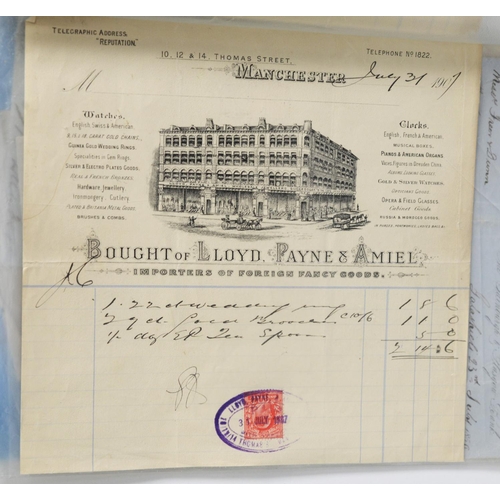 TELEGRAPHIC ADDRESS,
"REPUTATION."
TELEPHONE No 1822.
10, 12 & 14, THOMAS STREET,
MANCHESTER July 31 1907
M
Watches,
English Swiss & American.
GUINEA GOLD WEDDING RINGS.
Specialities in Gem Rings.
SILVER & ELECTRO PLATED GOODS.
Hardware Jewellery,
Ironmongery, Cutlery
PLATED & BRITANNIA METAL GOODS.
BRUSHES & COMBS.
Clocks,
English, French & American.
MUSICAL BOXES,
PIANOS & AMERICAN ORGANS.
GOLD & SILVER WATCHES.
OPERA & FIELD GLASSES.
Cabinet Goods
RUSSIA & MOROCCO GOODS,
BOUGHT OF LLOYD, PAYNE & AMIEL,
IMPORTERS OF FOREIGN FANCY GOODS.
1. 22 ct wedding ring 1 8 6
2 9 ct. Gold Brooches 11 0
½ dz EP Tea Spoons
2 14 6
LLOYD, PAYNE
31 JULY 1907
THOMAS